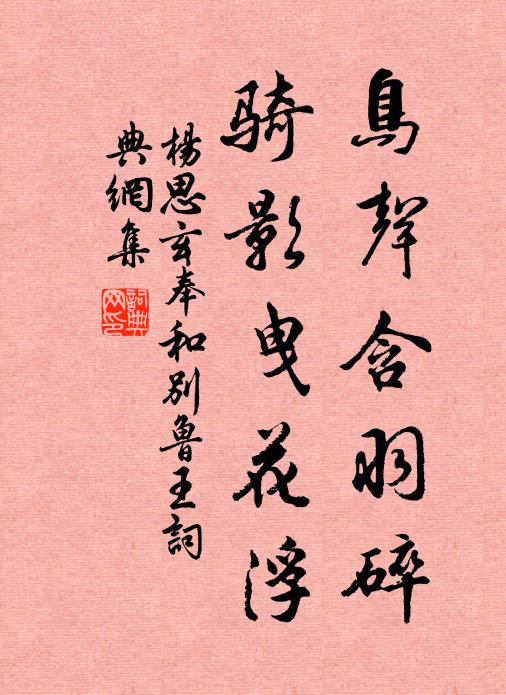 鳥聲含羽碎
騎影曳花浮
楊思玄奉和別魯王詞
典網集
詞典網印